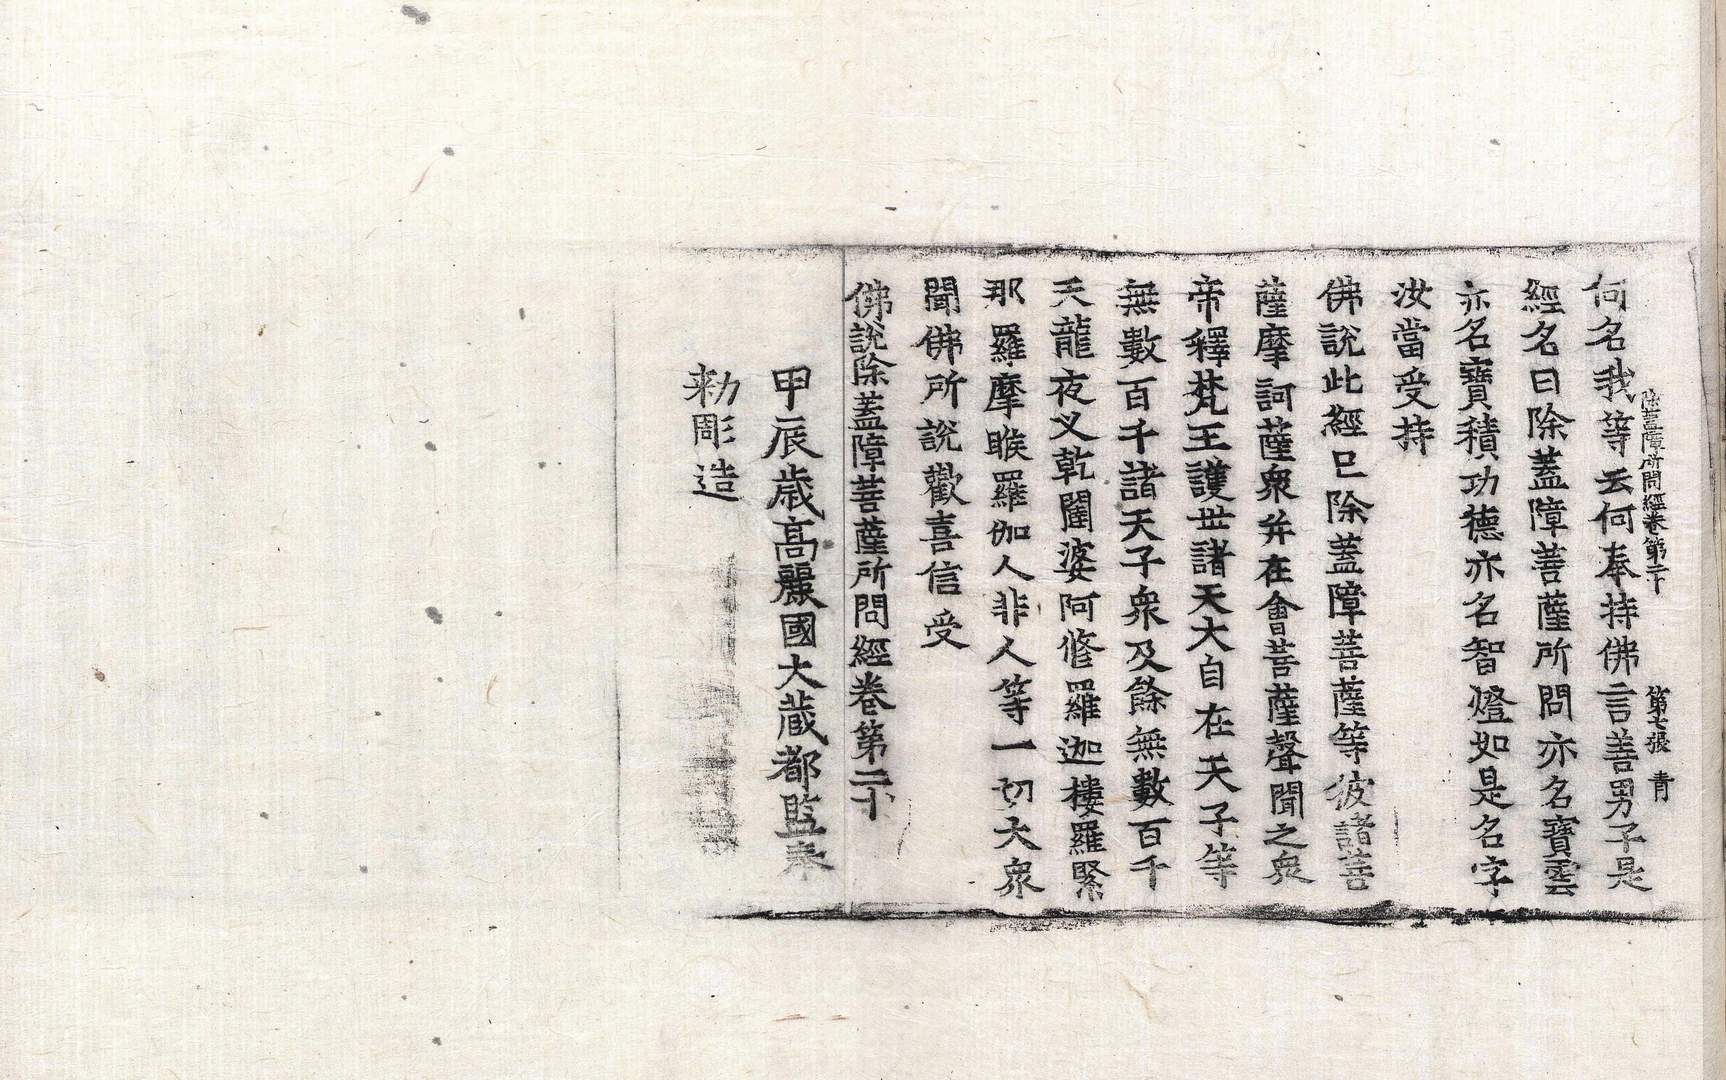 除蓋障所問經卷第二十 第七張 青
何名我等云何奉持佛言善男子是
經名曰除蓋障菩薩所問亦名寶雲
亦名寶積功德亦名智燈如是名字
汝當受持
佛說此經已除蓋障菩薩等彼諸菩
薩摩訶薩衆并在會菩薩聲聞之衆
帝釋梵王護世諸天大自在天子等
無數百千諸天子衆及餘無數百千
天龍夜叉乾闥婆阿修羅迦樓羅緊
那羅摩睺羅伽人非人等一切大衆
聞佛所說歡喜信受
佛說除蓋障菩薩所問經卷第二十
甲辰歲高麗國大藏都監奉
勅彫造